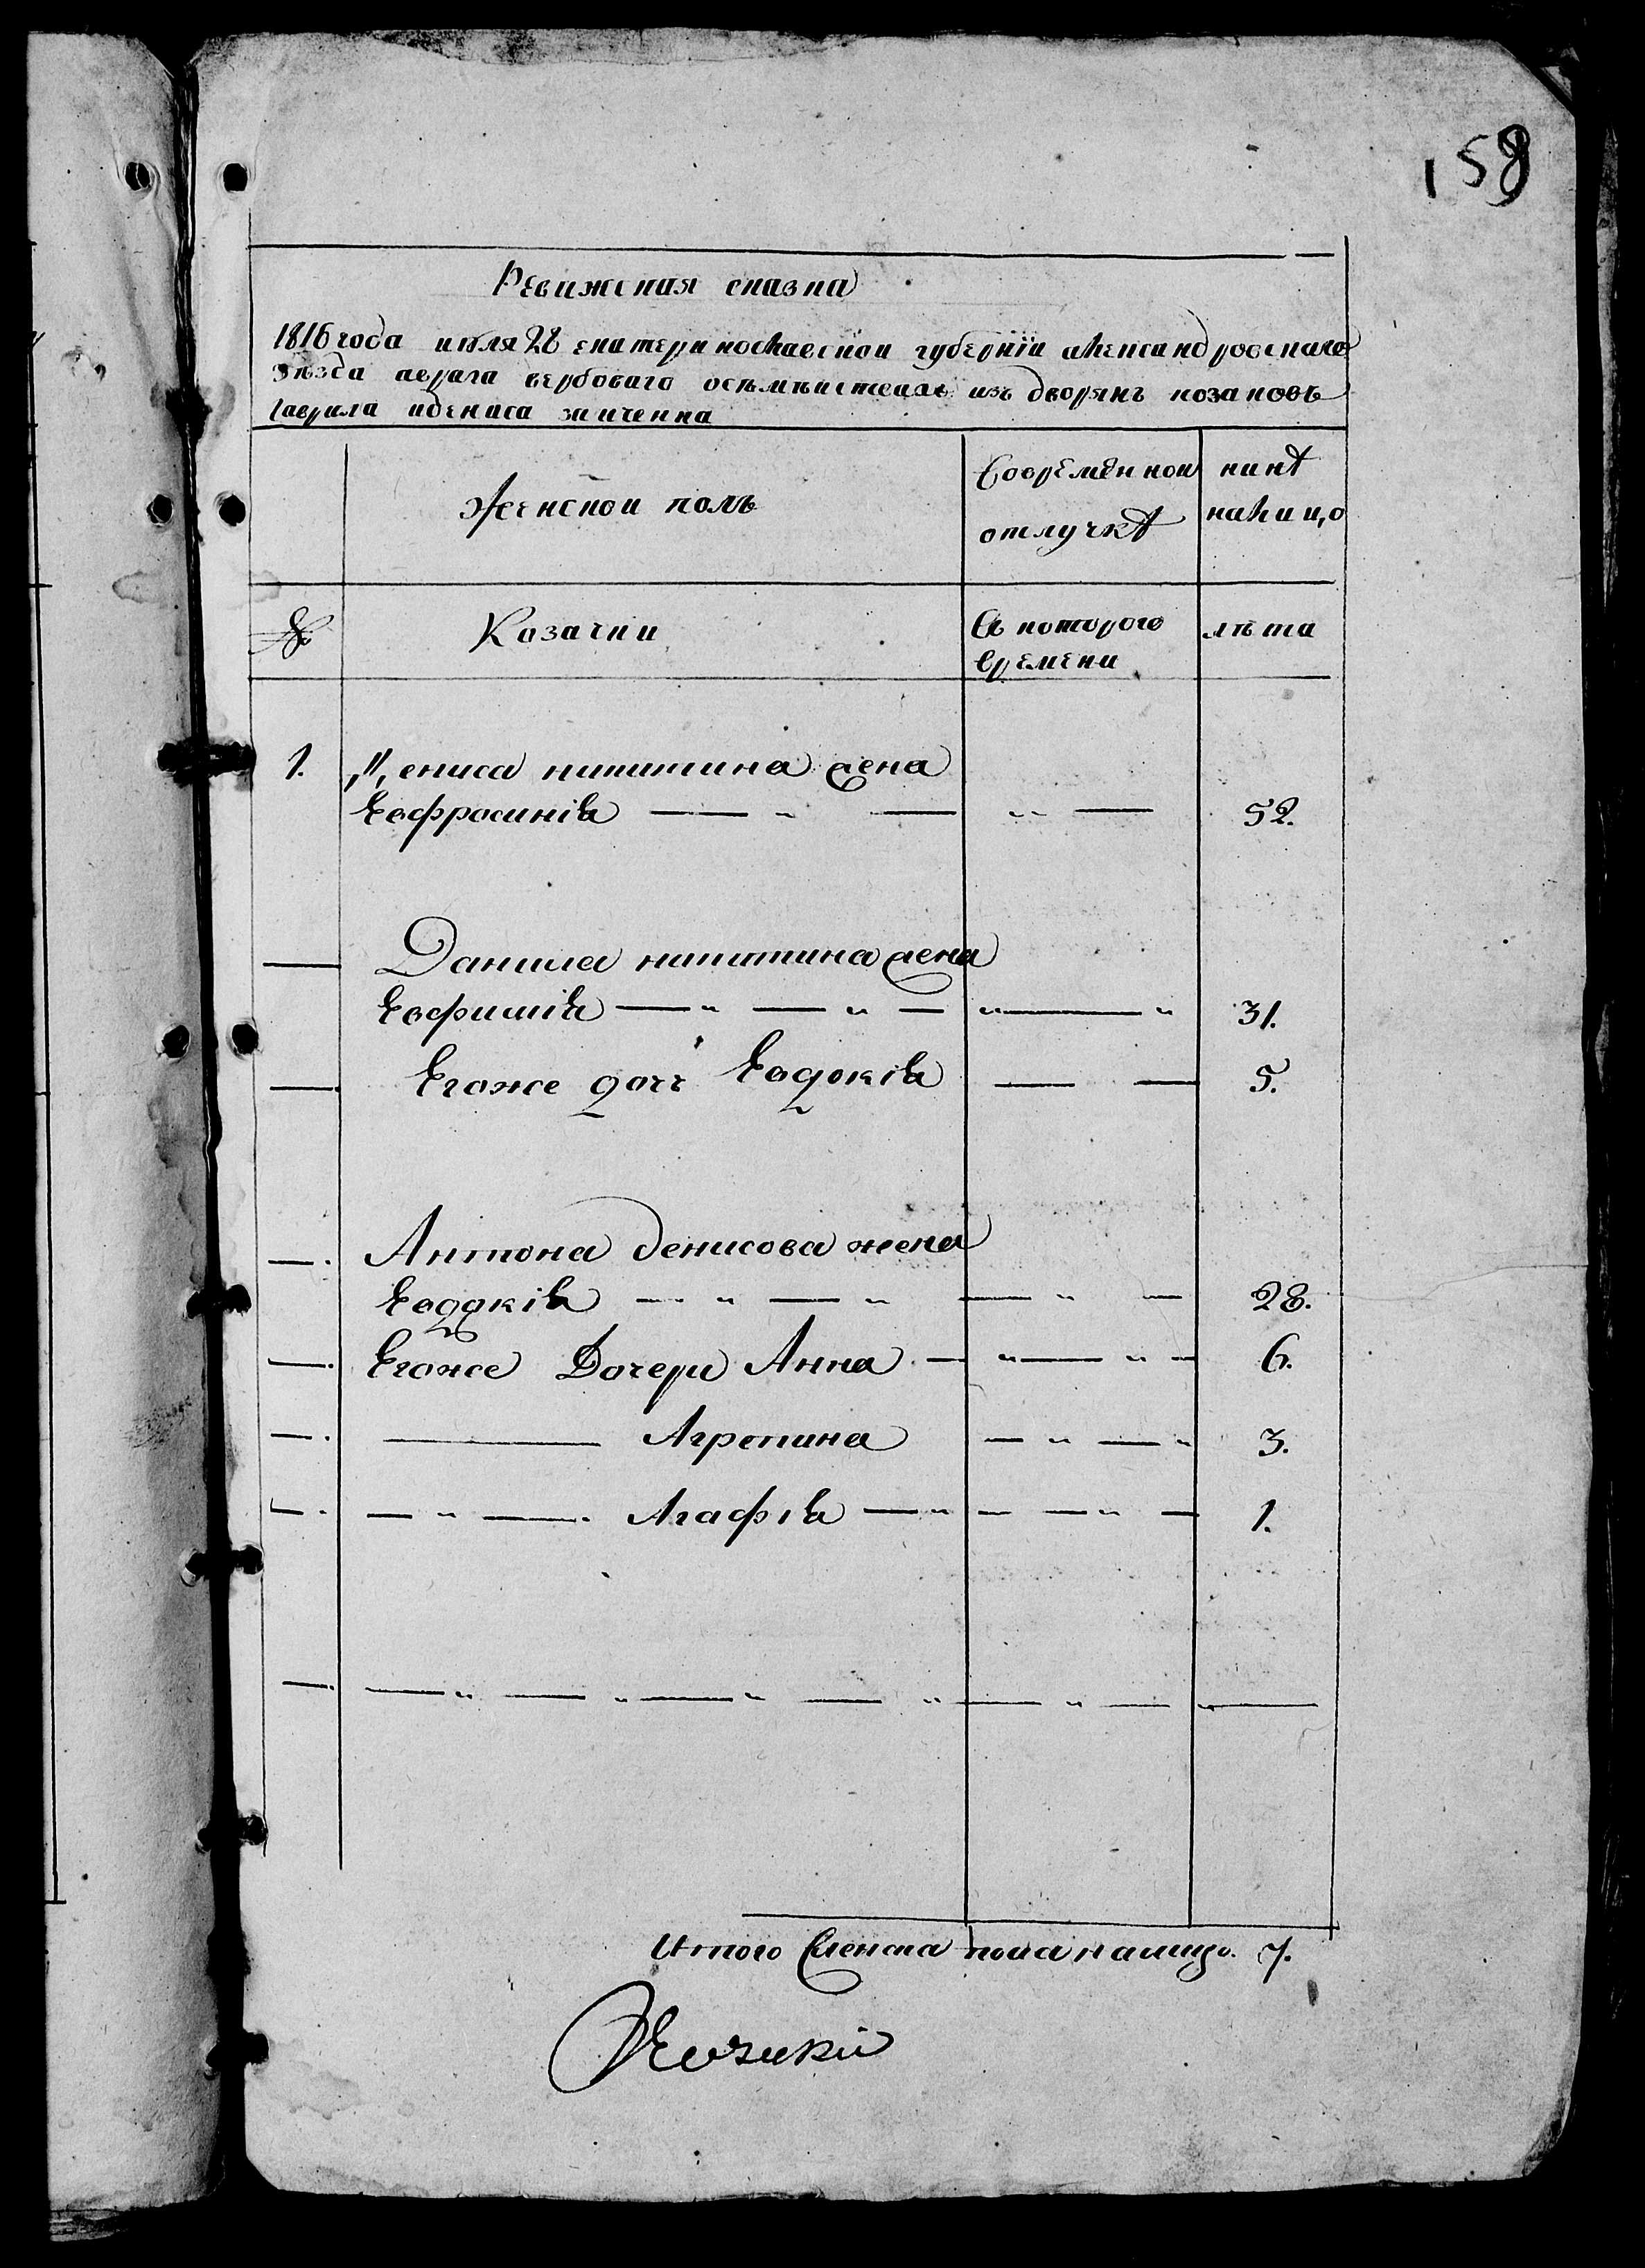 159
Ревижская сказка
1816 года июля 28 екатеринославской губернїи александровскаго
уѣзда аврага вербоваго осѣмѣиствахъ изъ дворянъ козаковъ
гаврила иденнса заиченка
Женской полъ
Совремѣнной отлучкѣ
нинѣ налицо
№
Козачки
Съ которого времени
лѣта
1. „ ениса никитина жена
Евфросинія — „ — „ — 52.
— Данила никитина жена
Евфимія — „ — „ — „ — „ 31.
— Егоже дочь Евдокія — — 5.
— Антона денисова жена
Евдокія — „ — „ — „ — 28.
— Егоже Дочери Анна — „ — „ — 6.
— — Агрепина — „ — „ 3.
— — „ — Агафія — „ — — „ — 1.
— — „ — „ — „ — „ — „ — „ —
Итого Женска пола налицо. 7.